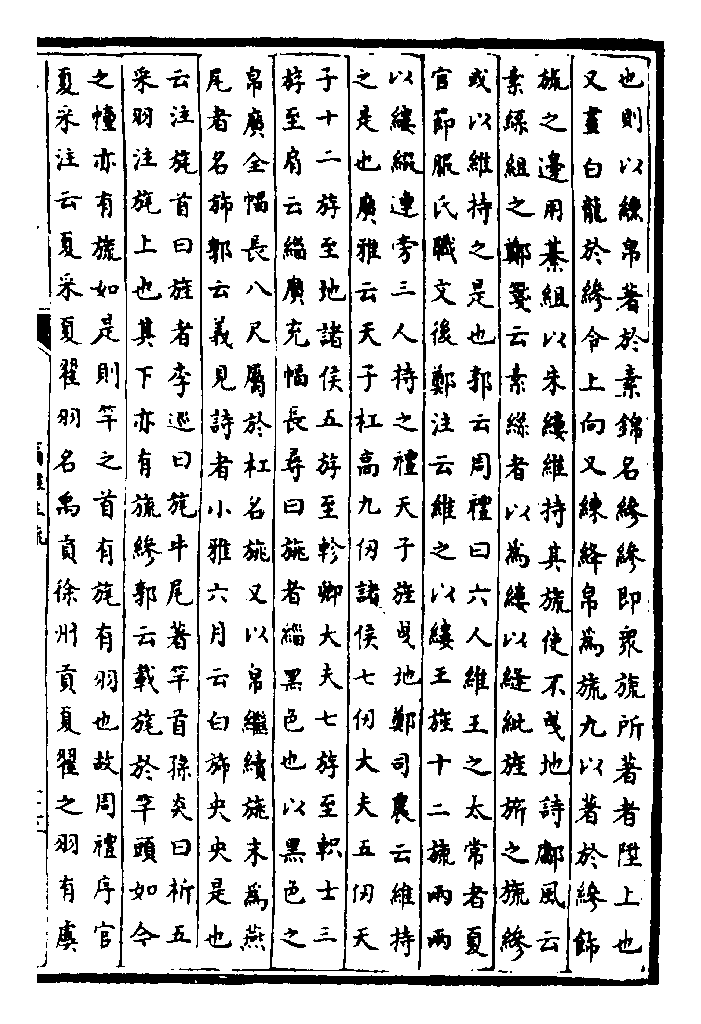 也則以練帛著於素錦名縿縿即眾旒所著者陞上也
又畫白龍於縿令上向又練絳帛為旒九以著於縿飾
旒之邊用綦組以朱縷維持其旒使不曳地詩鄘風云
素絲組之鄭箋云素絲者以為縷以縫紕旌旂之旒縿
或以維持之是也郭云周禮曰六人維王之太常者夏
官節服氏職文後鄭注云維之以縷王旌十二旒兩兩
以縷綴連旁三人持之禮天子旌曳地鄭司農云維持
之是也廣雅云天子杠高九仞諸侯七仞大夫五仞天
子十二斿至地諸侯五斿至軫卿大夫七斿至軹士三
斿至肩云緇廣充幅長尋曰旐者緇黑色也以黑色之
帛廣全幅長八尺屬於杠名旐又以帛繼續旐末為燕
尾者名斾郭云義見詩者小雅六月云白斾央央是也
云注旄首曰旌者李巡曰旄牛尾著竿首孫炎曰析五
采羽注旄上也其下亦有旒縿郭云載旄於竿頭如今
之幢亦有旒如是則竿之首有旄有羽也故周禮序官
夏采注云夏采夏翟羽名禹貢徐州貢夏翟之羽有虞